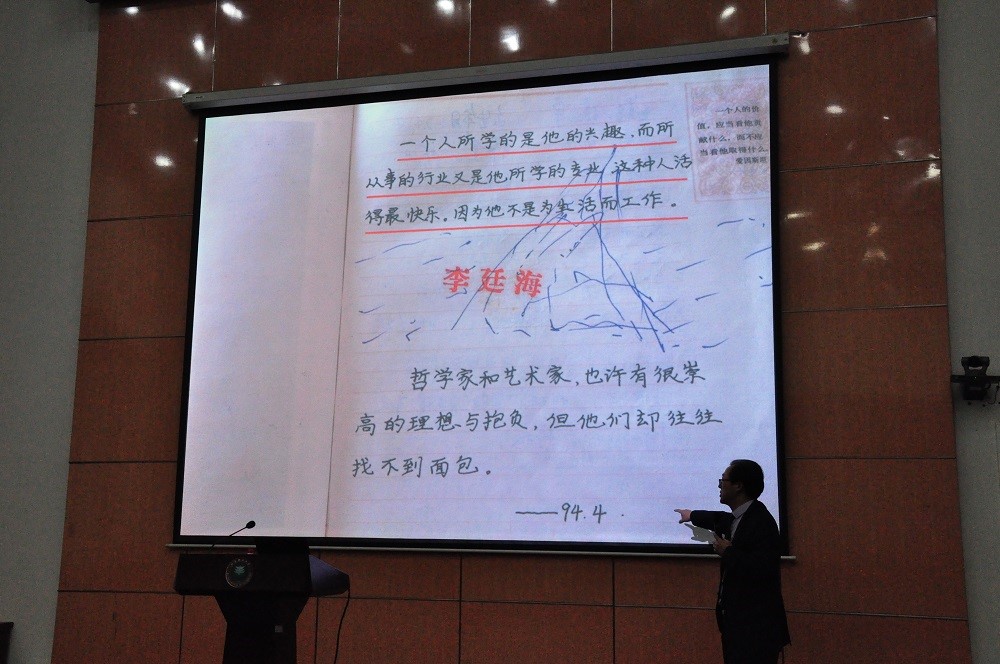 一个人的价
值，应当看他贡
献什么，而不应
当看他取得什么
爱因斯坦
一个人所学的是他的兴趣，而所
从事的行业又是他所学的专业，这种人活
得最快乐。因为他不是为生活而工作。
李廷海
哲学家和艺术家，也许有很崇
高的理想与抱负，但他们却往往
找不到面包。
——94.4.